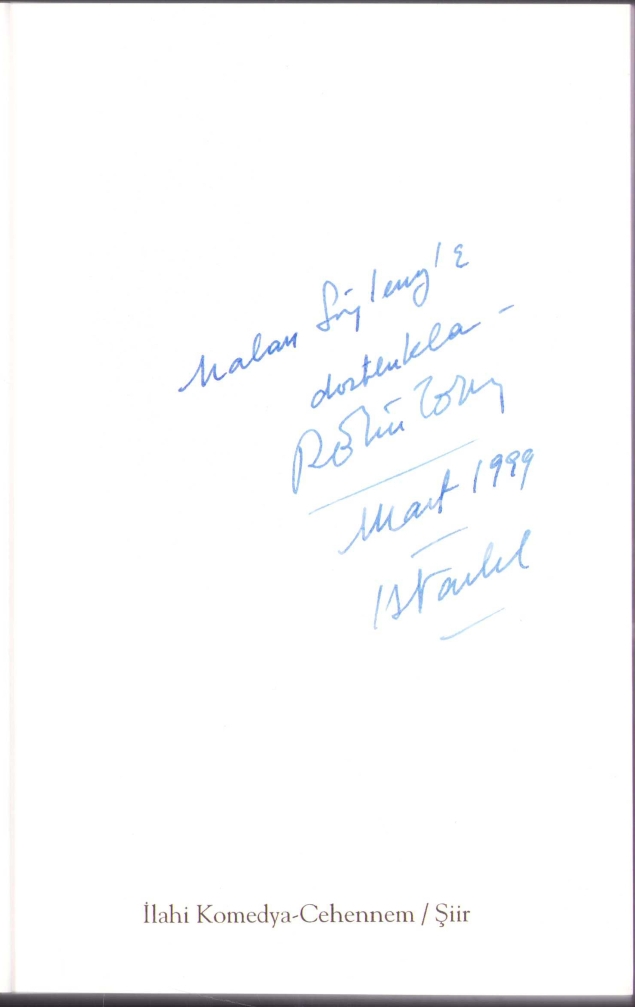 dostlukla -
Rekin Teksoy
Mart 1999
Istanbul
İlahi Komedya-Cehennem / Şiir